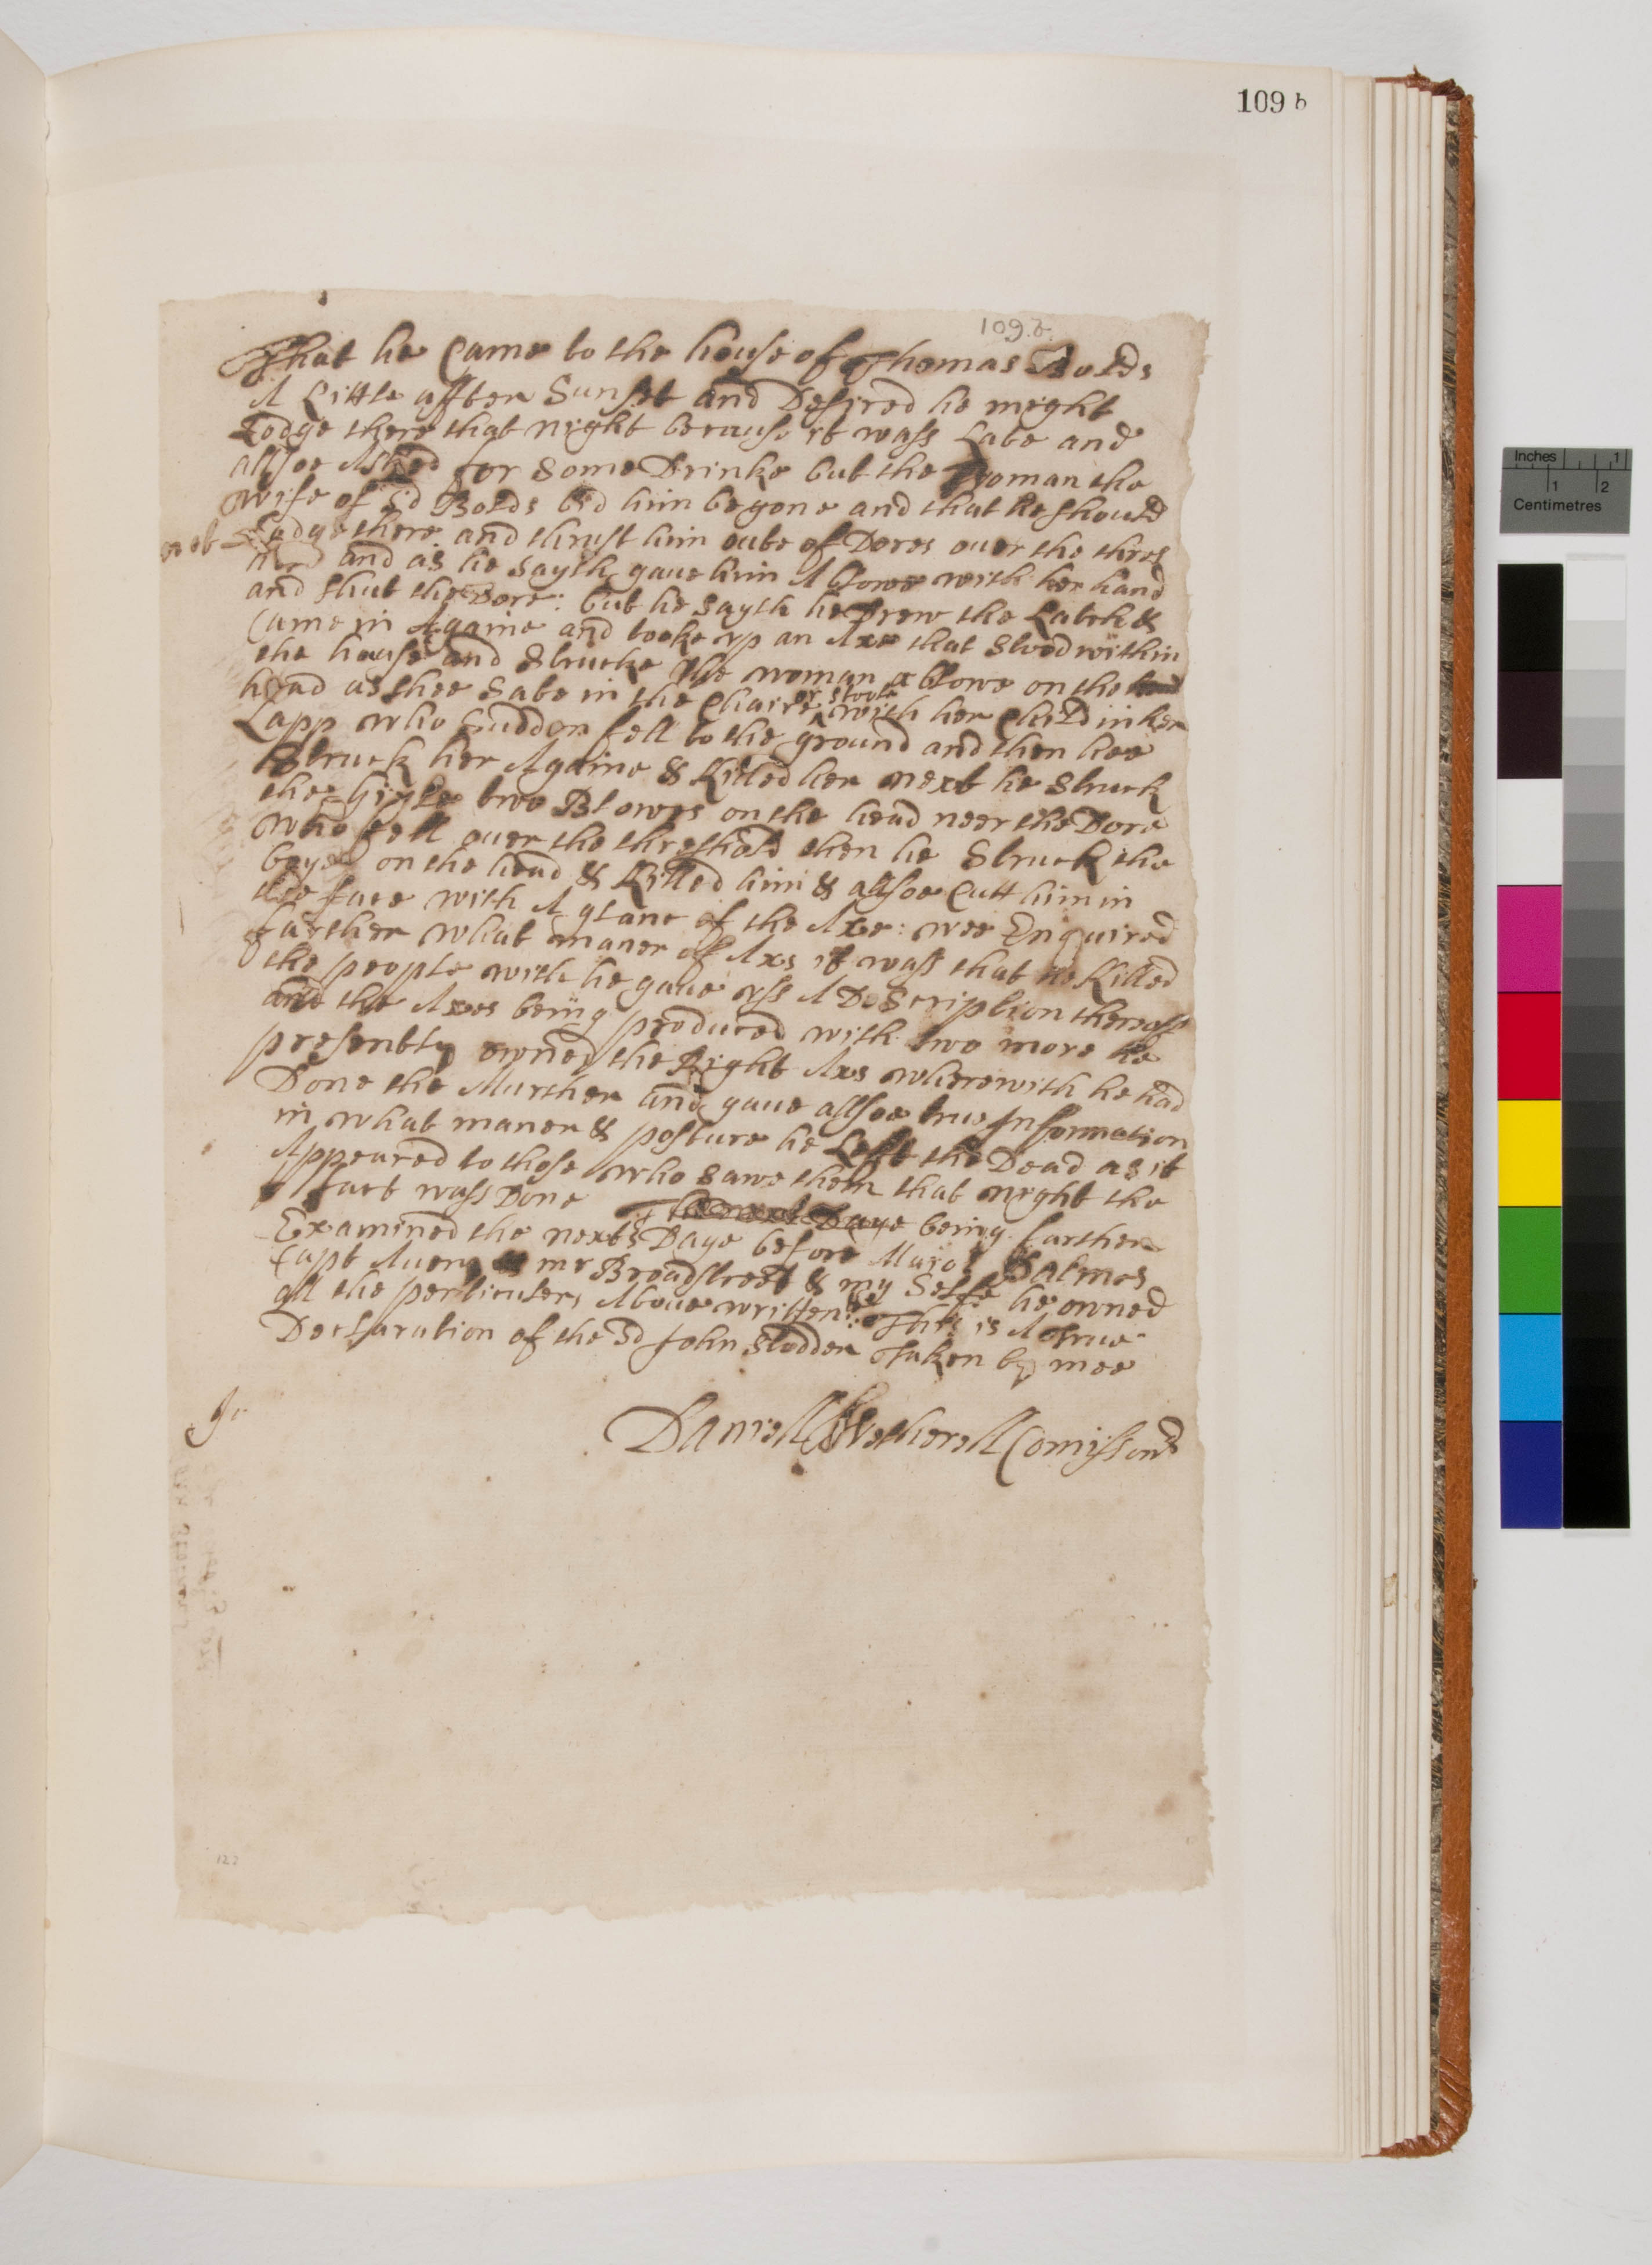 109 b
109.b
That he Came to the house of Thomas Bolds
A Little after Sunset and Desired he might
Lodge there that night because it wass Late and
allsoe Asked for Some Drinke but the Woman the
wife of sd Bolds bid him begone and that he should
not Lodge there and thrust him oute of Dores over the thres
and as he sayth gave him A blowe with her hand
and shut the Dore: but he sayth he Drew the Latch &
Came in Againe and tooke vp an Axe that stood within
the house and strucke the woman a blowe on the head
head as shee sate in the Chaire or stoole with her Child in her
Lapp who sudden fell to the ground and then hee
struck her Againe & Killed her next he struck
the Girle two Blowes on the head neer the Dore
who fell over the threshold then he struck the
boye on the head & Killed him & allsoe Cutt him in
the face with A glanc of the Axe: wee Enquired
farther what maner of Axs it wass that he Killed
the people with he gave vss A Description thereoff
and the Axes being produced with two more he
presently owned the Right Axs wherewith he had
Done the Murther and gave allsoe true Information
in what maner & posture he Left the Dead as it
Appeared to those who sawe them that night the
fact wass Done The next Daye being farther
Examined the next Daye before Major Palmes
Capt Avery mr Broadstreet & my Selfe he owned
all the perticulers Above written: This is A true
Declaration of the sd John Stodder Taken by mee
Daniell Wetherell Comissonr
Jo
122